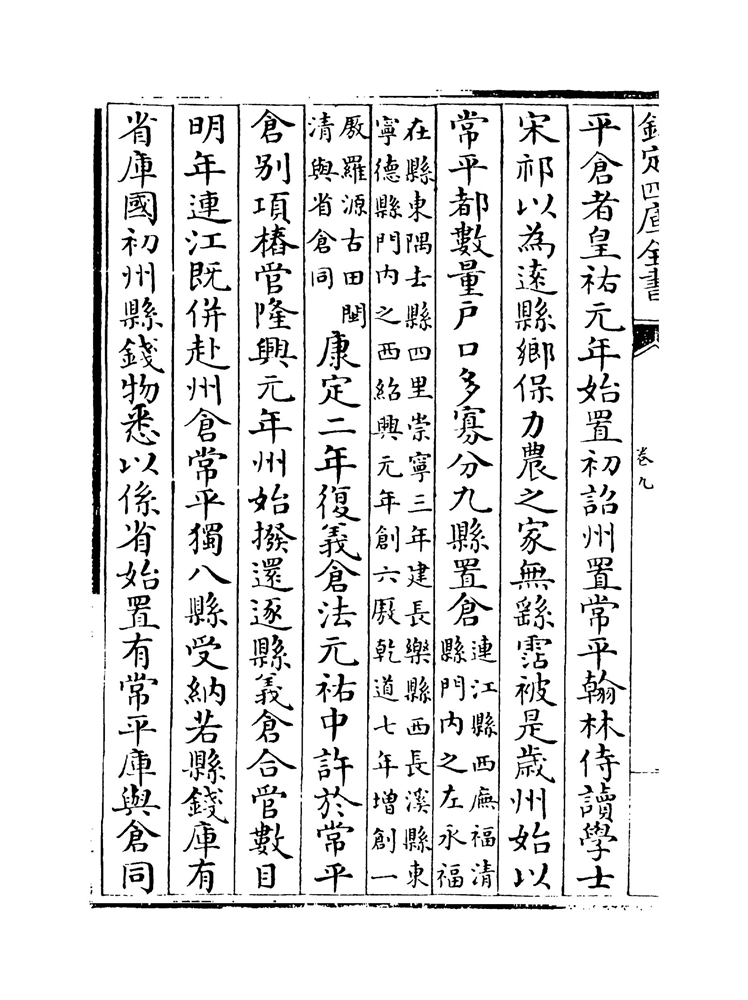 欽定四庫全書
卷九
平倉者皇祐元年始置初詔州置常平翰林侍讀學士
宋祁以為逺縣鄉保力農之家無繇霑被是歲州始以
常平都數量户口多寡分九縣置倉
連江縣西廡福清
縣門内之左永福
在縣東隅士縣四里崇寧三年建長樂縣西長溪縣東
寧德縣門内之西紹興元年創六廒乾道七年增創一
廒羅源古田閩
清與省倉同
康定二年復義倉法元祐中許於常平
倉别項樁管隆興元年州始撥還逐縣義倉合管數目
明年連江既併赴州倉常平獨八縣受納若縣錢庫有
省庫國初州縣錢物悉以係省始置有常平庫與倉同